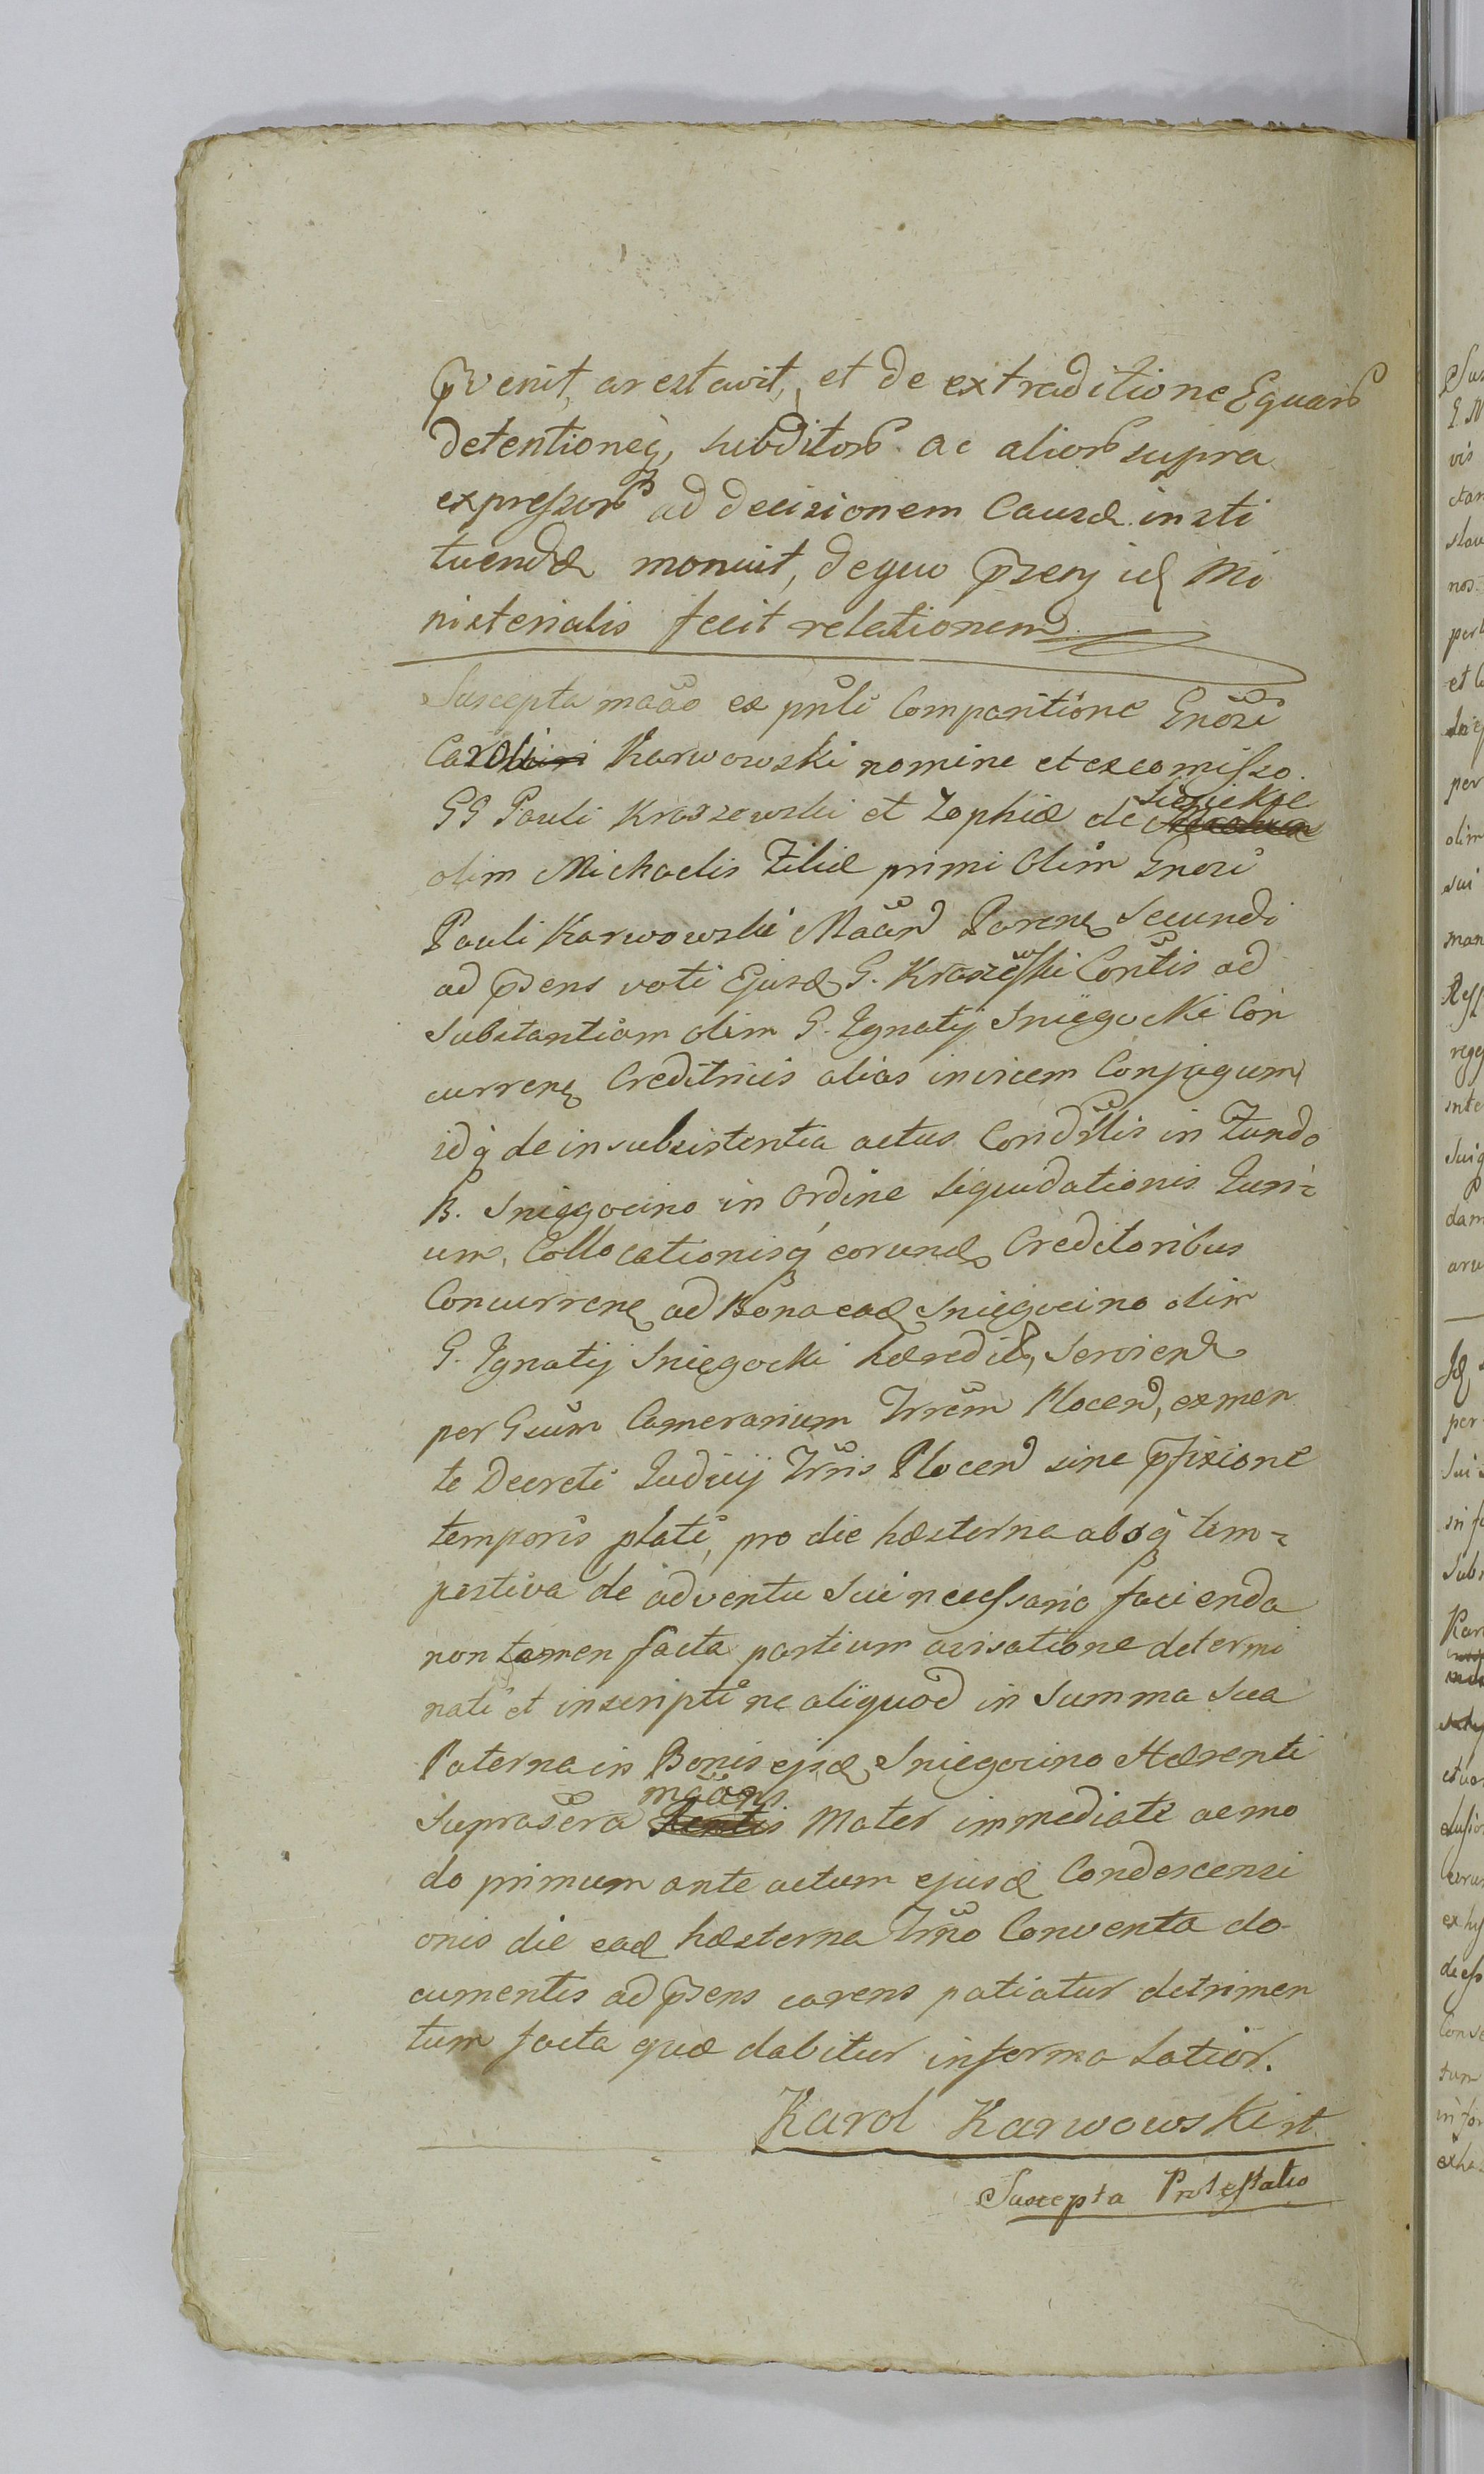 prvenit, arestavit, et de extraditione Equarũ
detentioneq, subditorũ ac aliorũ supra
expreſsorũ ad decisionem Causæ insti
tuendæ monuit, dequo przens id Mi
nisterialis fecit relationem
Suscepta maão ex pnli Comparitione Gnosi
Caroli Karwowski nomine et ex comiſso
GG Pauli Kraszewski et Zophiæ de
olim Michaelis Filiæ primi olim Gnosi
Pauli Karwowski Maan Paren Secundi
ad przens voti Ejusd G. Kraszewſki Contis ad
Substantiam olim G. Ignatij Sniegocki Con
curren Creditricis alias invicem Conjugum
idq de insubsistentia actus Condlis in Fundo
B. Sniegocino in ordine liquidationis Juri=
um, Collocationisq eorund Creditoribus
Concurren ad Bona ead Sniegocino olim
G. Ignatij Sniegocki hæredit, Servien
per Gsum Camerarium Trrem Plocen, exmen
te Decreti Judicij Trris Plocen sine prfixione
temporis plati, pro die hæsterna absq tem=
pestiva de adventu Sui neceſsario facienda
non tamen facta partium avisatione determi
nati et inscripti ne aliquod in Summa Sua
Paterna in Bonis ejsd Sniegocino Hærenti
maãns
Suprasera Mater immediate ac mo
do primum ante actum ejusd Condescensi
onis die ead hæsterna Trrno Conventa do
cumentis ad przens carens patiatur detrimen
tum facta quæ dabitur in forma Latior.
Karol Karwowski
Suscepta Proteſtatio